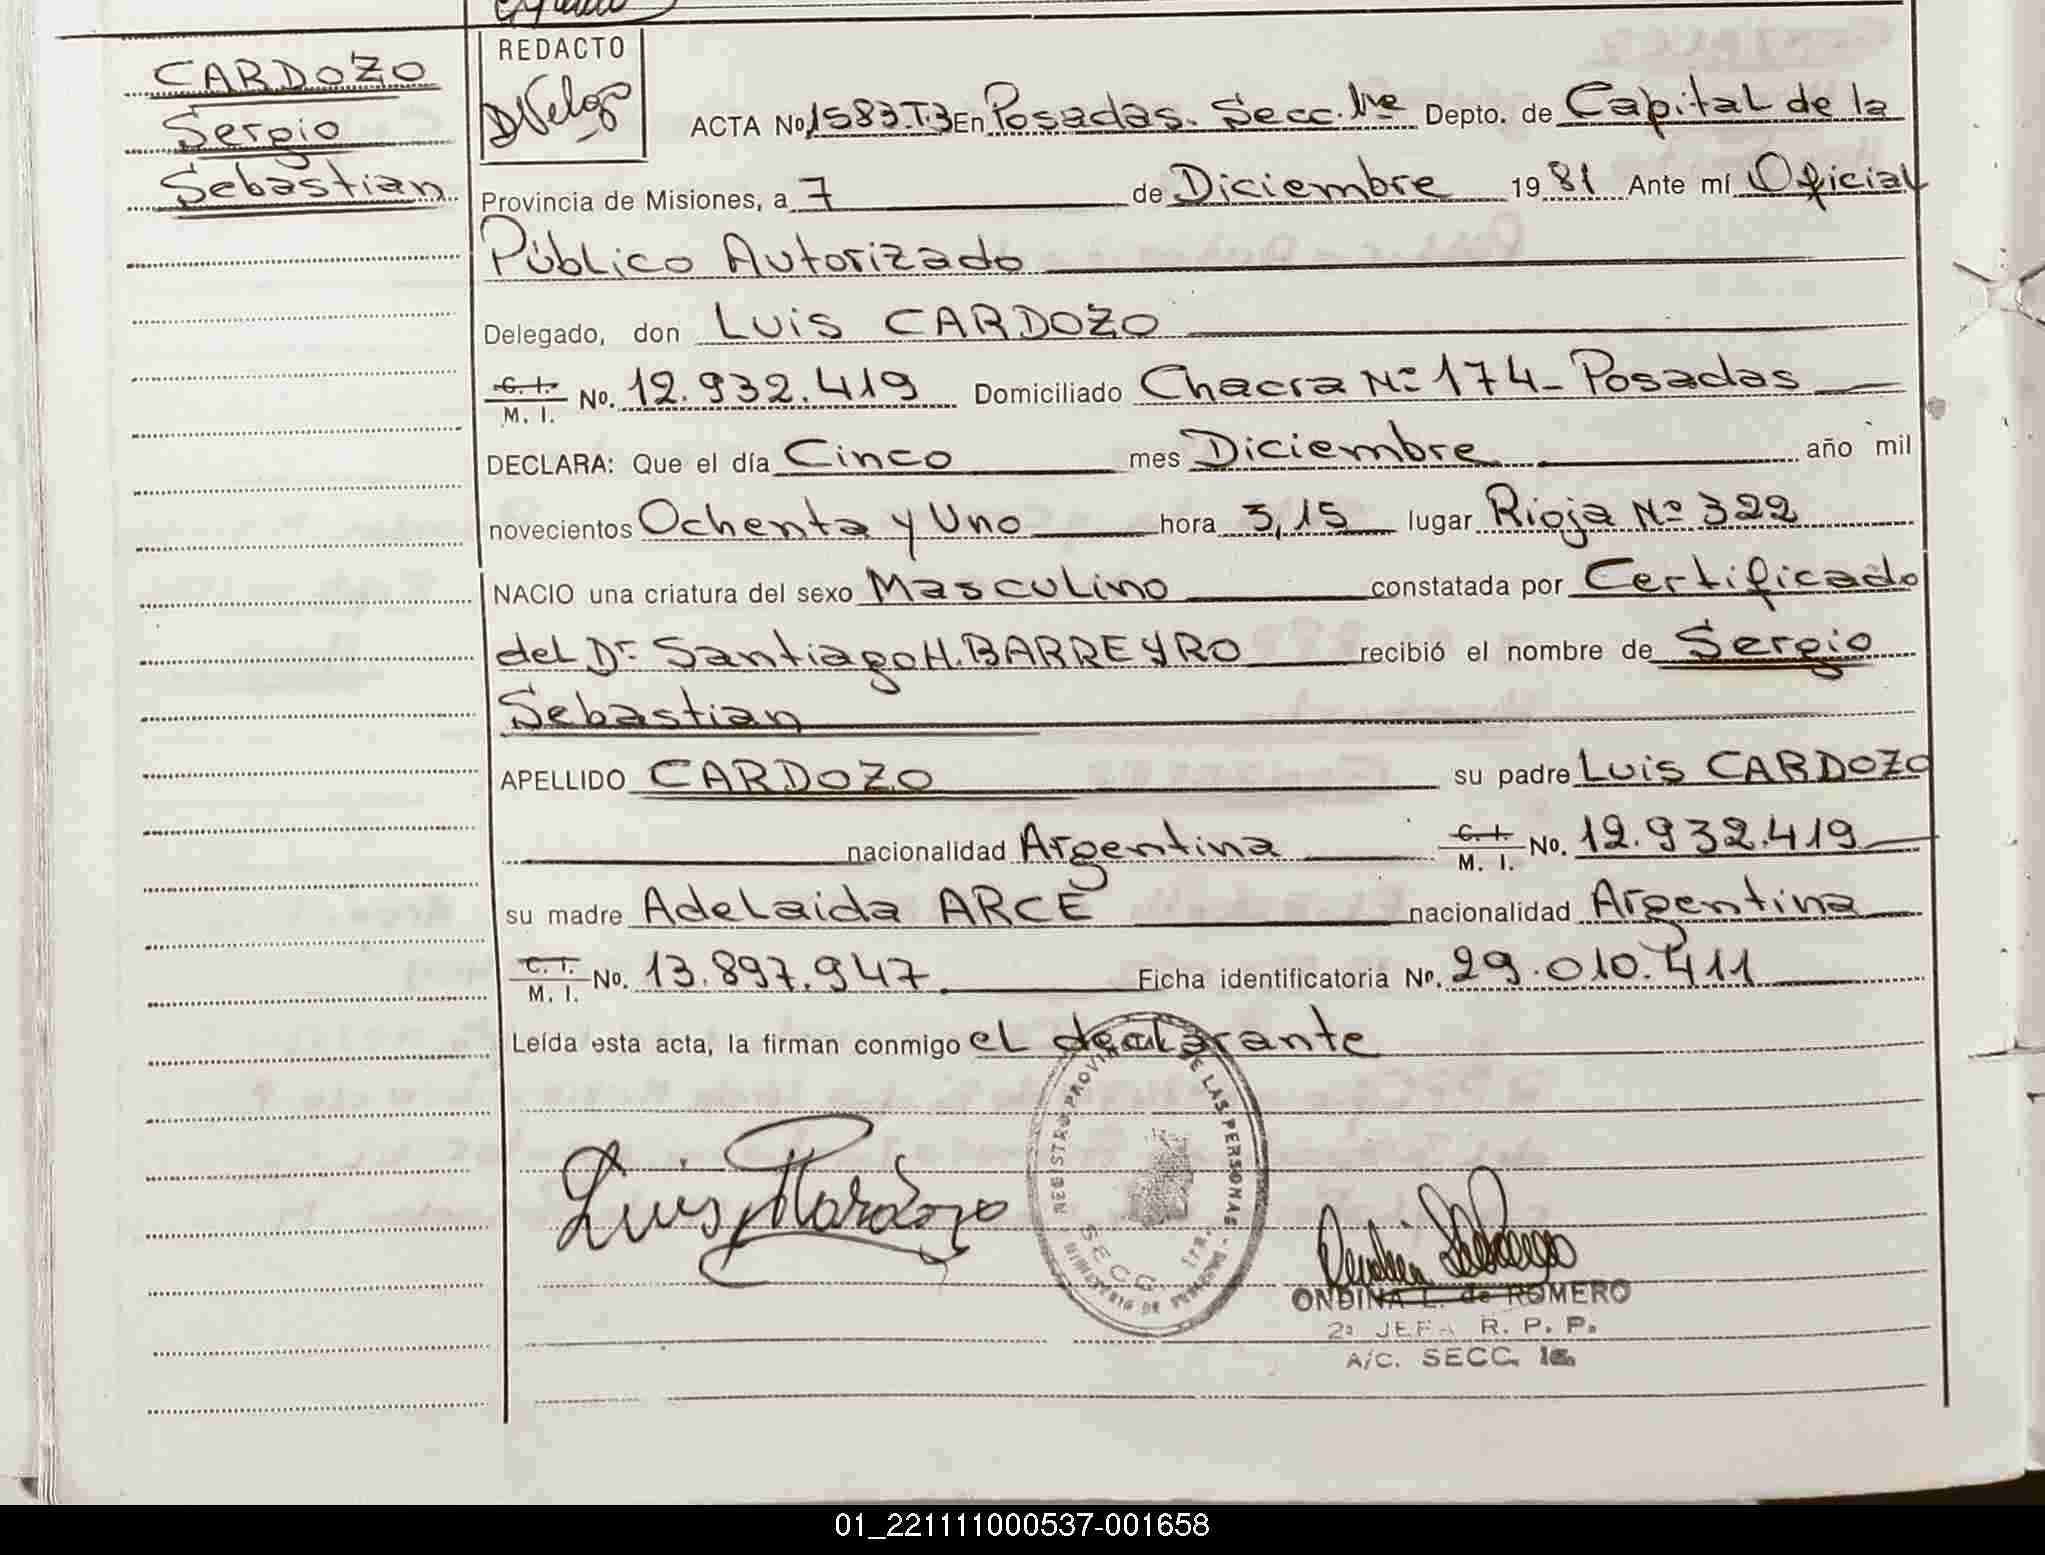 CARDOZO
Sergio
Sebastian
REDACTO
ACTA No 1583.T.3 En Posadas. Secc. 1ra Depto. de Capital de la
Provincia de Misiones, a 7 de Diciembre 1981 Ante mí Oficial
Público Autorizado
Delegado, don Luis CARDOZO
C. I. M. I. No. 12.932.419 Domiciliado Chacra Nº 174 - Posadas
DECLARA: Que el día Cinco mes Diciembre año mil
novecientos Ochenta y Uno hora 3,15 lugar Rioja Nº 322
NACIO una criatura del sexo Masculino constatada por Certificado
del Dr. Santiago H. BARREYRO recibió el nombre de Sergio
Sebastian
APELLIDO CARDOZO su padre Luis CARDOZO
nacionalidad Argentina C. I. M. I. No. 12.932.419
su madre Adelaida ARCE nacionalidad Argentina
C. I. M. I. No. 13.897.947 Ficha identificatoria No. 29.010.411
Leída esta acta, la firman conmigo el declarante
REGISTRO PROVINCIAL DE LAS PERSONAS - MINISTERIO DE
SECC. 1ra.
Luis Cardozo
ONDINA L. de ROMERO
2a JEFA R. P. P.
A/C. SECC. 1a.
01_221111000537-001658